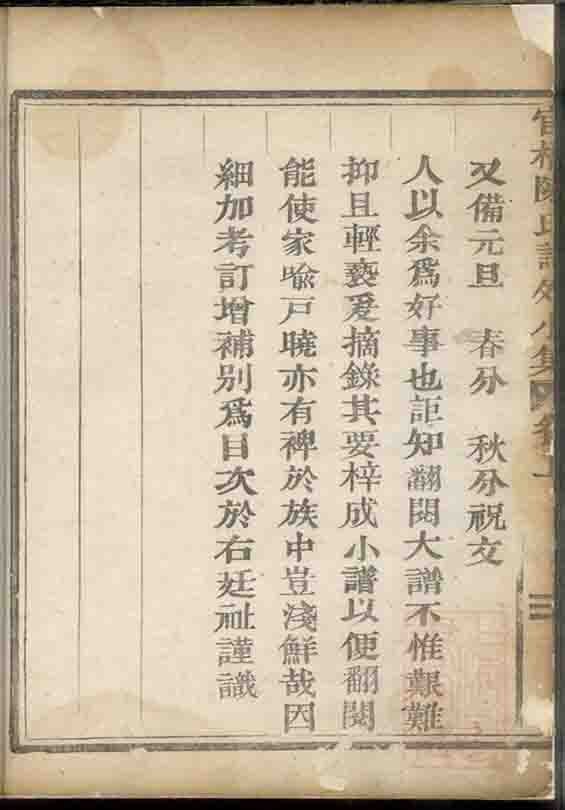 官橋陳氏譜外小集 卷一 三
又備元旦 春分 秋分祝文
人以余爲好事也詎知翻閱大譜不惟艱難
抑且輕褻爰摘錄其要梓成小譜以便翻閱
能使家喻戸曉亦有裨於族中豈淺鮮哉因
細加考訂增補别爲目次於右廷祉謹識